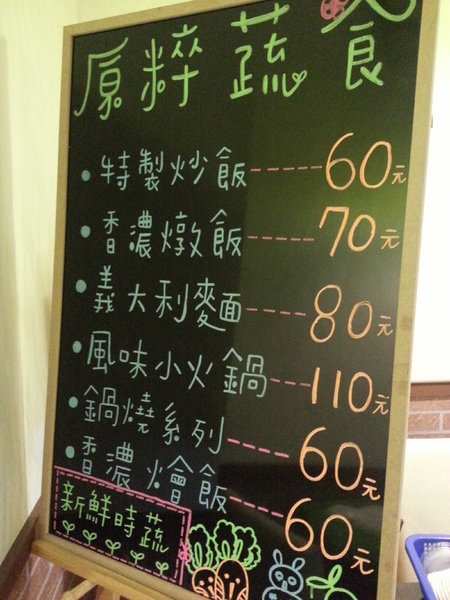 原粹蔬食
特製炒飯-----60元
香濃燉飯----70元
義大利麵----80元
風味小火鍋--110元
鍋燒系列----60元
香濃燴飯----60元
新鮮時蔬